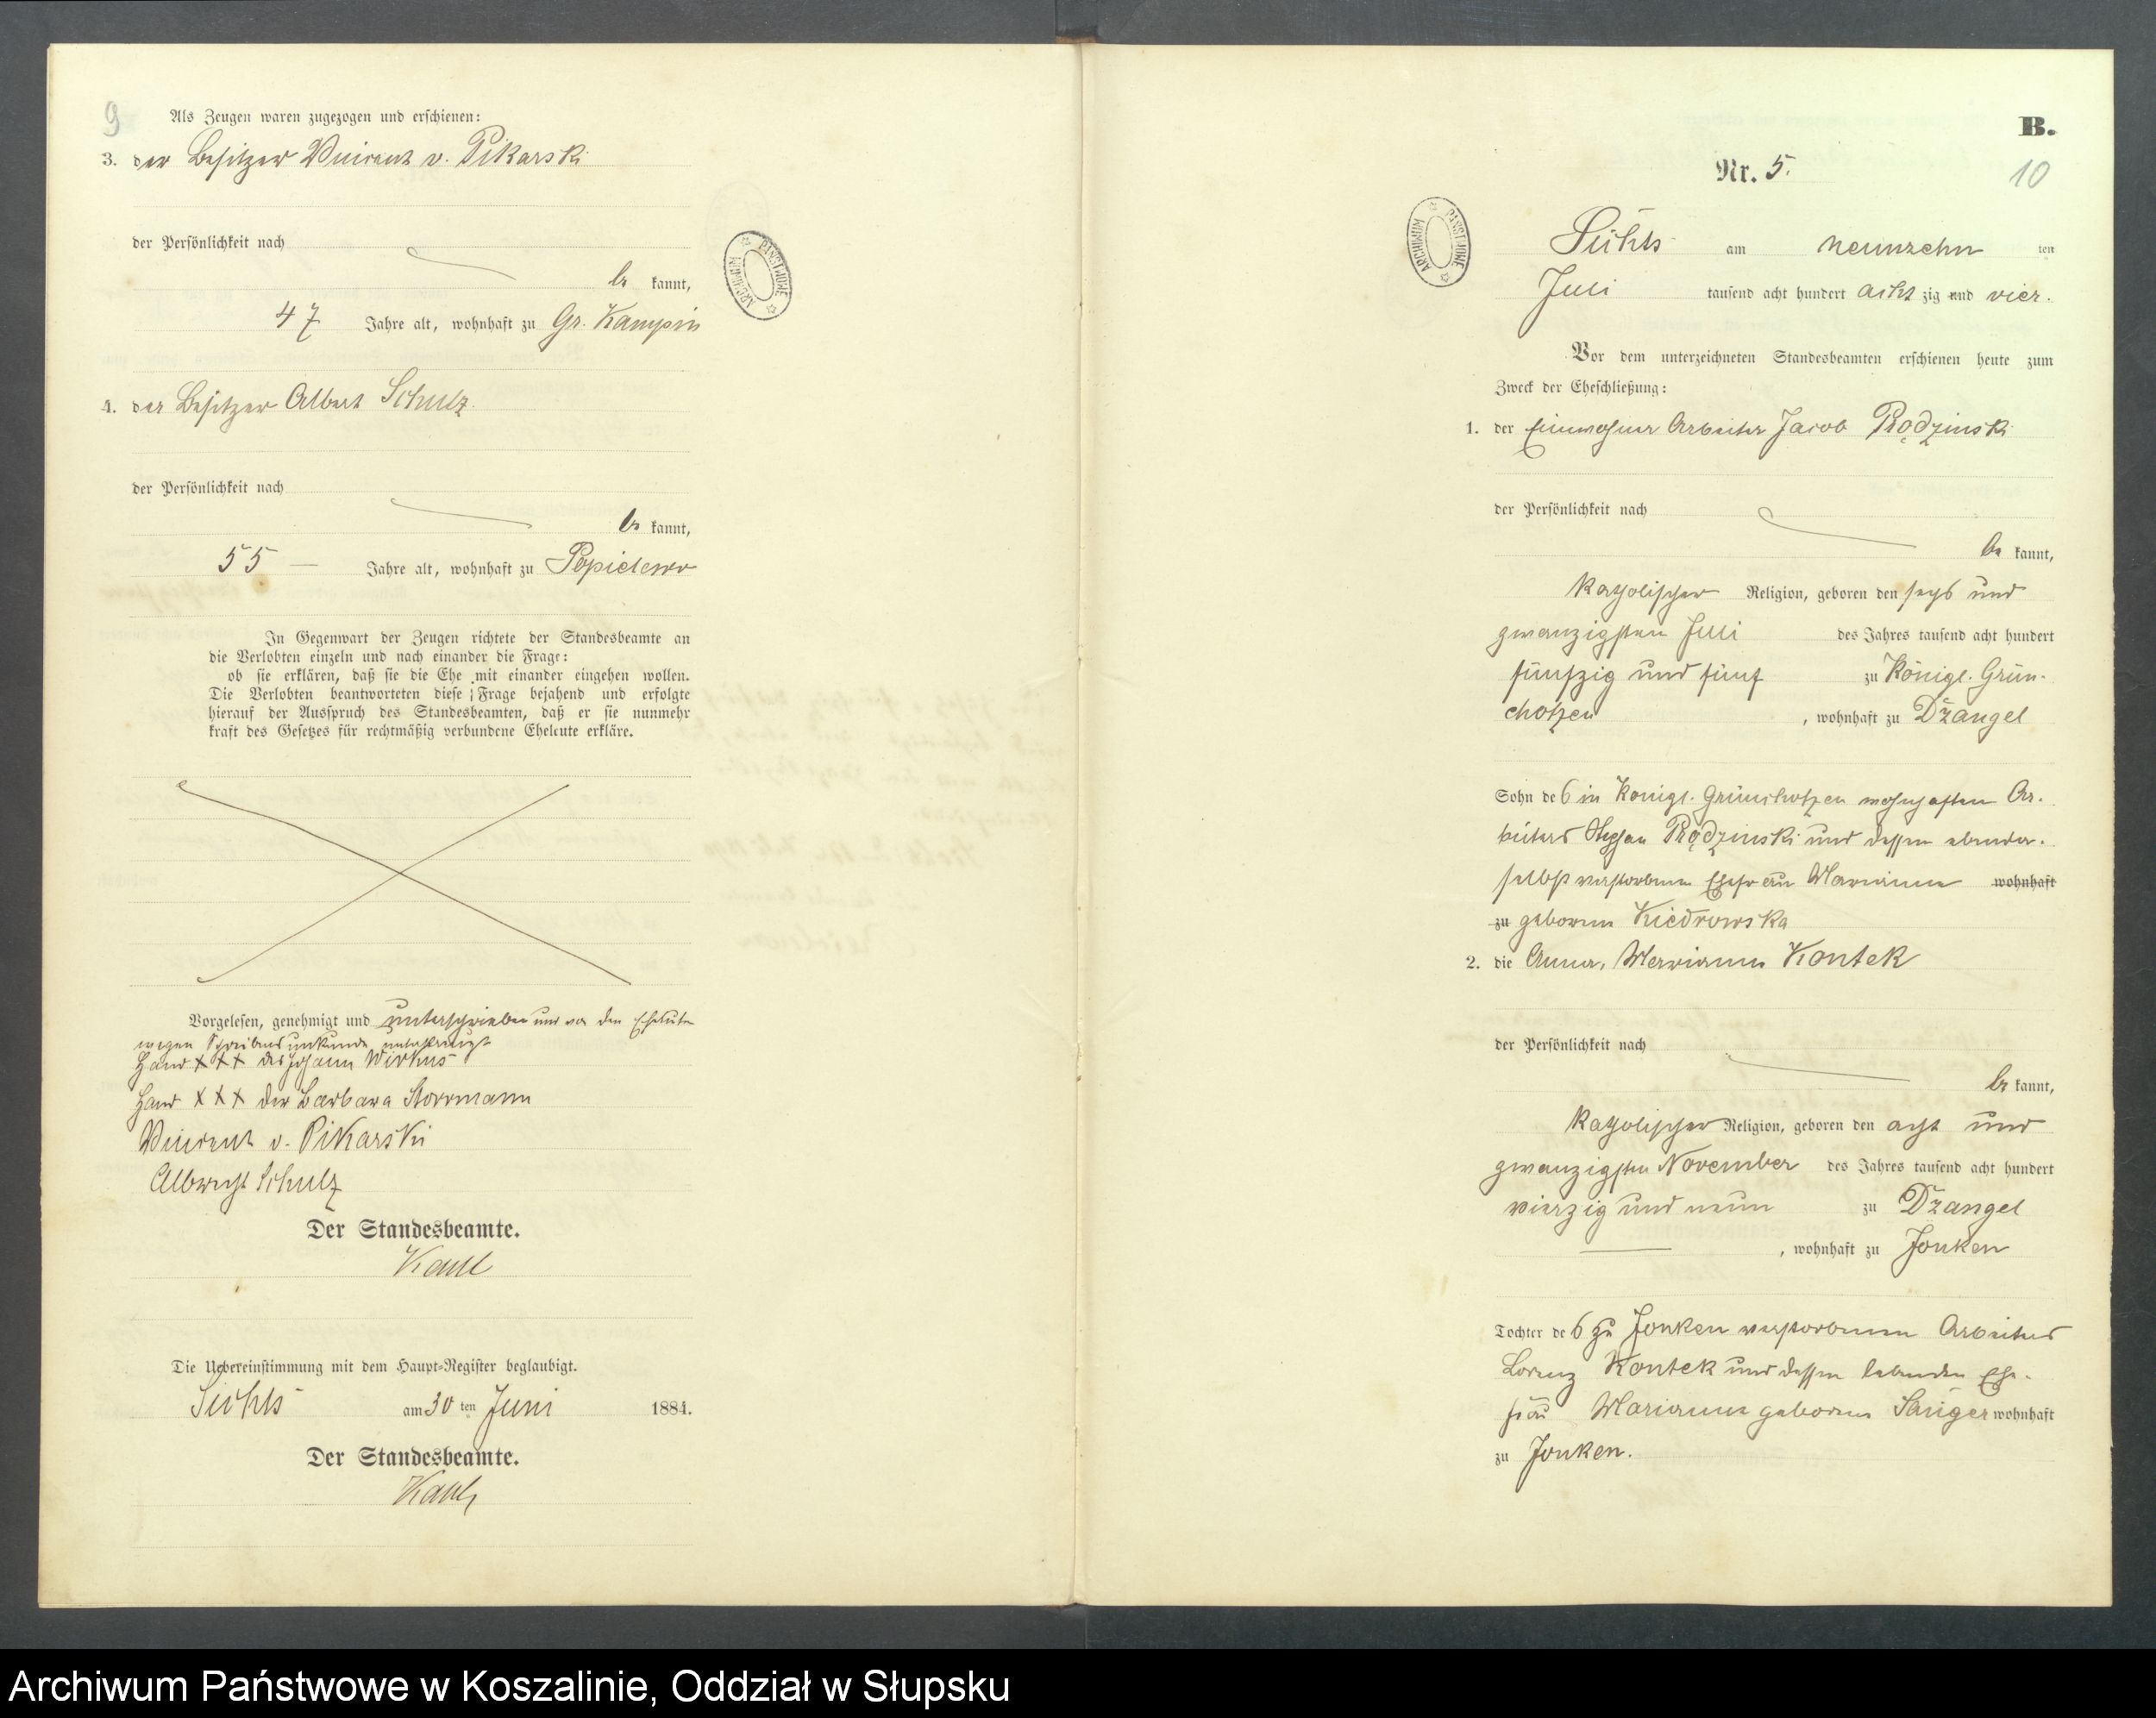 9
Als Zeugen waren zugezogen und erschienen:
3. der Besitzer Vincent v. Pikarski
der Persönlichkeit nach
be kannt,
47 Jahre alt, wohnhaft zu Gr. Kampin
4. der Besitzer Albert Schulz
der Persönlichkeit nach
be kannt,
55 — Jahre alt, wohnhaft zu Popielewo
In Gegenwart der Zeugen richtete der Standesbeamte an
die Verlobten einzeln und nach einander die Frage:
ob sie erklären, daß sie die Ehe mit einander eingehen wollen.
Die Verlobten beantworteten diese Frage bejahend und erfolgte
hierauf der Ausspruch des Standesbeamten, daß er sie nunmehr
kraft des Gesetzes für rechtmäßig verbundene Eheleute erkläre.
Vorgelesen, genehmigt und unterschrieben und von den Eheleuten
wegen Schreibensunkunde unterkreuzt
Hand +++ des Johann Wirkus
Hand +++ der Barbara Storrmann
Vincent v. Pikarski
Albrecht Schulz
Der Standesbeamte.
Kaul
Die Uebereinstimmung mit dem Haupt-Register beglaubigt.
am 30 ten Juni 1884.
Der Standesbeamte.
Kaul
ARCHIWUM PAŃSTWOWE
B.
Nr. 5.
10
ARCHIWUM PAŃSTWOWE
am neunzehn ten
Juli tausend acht hundert acht zig und vier.
Vor dem unterzeichneten Standesbeamten erschienen heute zum
Zweck der Eheschließung:
1. der Einwohner Arbeiter Jacob Rodzinski
der Persönlichkeit nach
be kannt,
katholischer Religion, geboren den sechs und
zwanzigsten Juli des Jahres tausend acht hundert
fünfzig und fünf zu Königl. Grün-
chotzen, wohnhaft zu Dzangel
Sohn des in Königl. Grünchotzen wohnhaften Ar-
beiters Stephan Rodzinski und dessen ebenda-
selbst verstorbenen Ehefrau Marianna wohnhaft
zu geborene Kiedrowska
2. die Anna, Marianna Kontek
der Persönlichkeit nach
be kannt,
katholischer Religion, geboren den acht und
zwanzigsten November des Jahres tausend acht hundert
vierzig und neun zu Dzangel
, wohnhaft zu Jonken
Tochter des zu Jonken verstorbenen Arbeiters
Lorenz Kontek und dessen lebenden Ehe-
frau Marianna geborene Sänger wohnhaft
zu Jonken.
Archiwum Państwowe w Koszalinie, Oddział w Słupsku